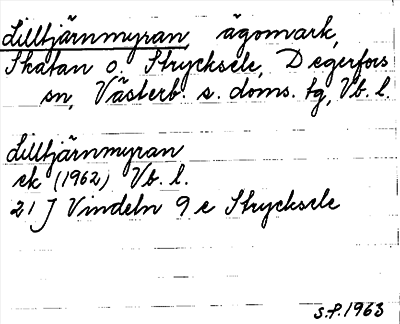 Lilltjärnmyran ägomark,
Skatan o. Strycksele, Degerfors
sn, Västerb. s. doms. tg, Vb. l.
Lilltjärnmyran
ek (1962) Vb. l.
21 J Vindeln 9 e Strycksele
S.P. 1963